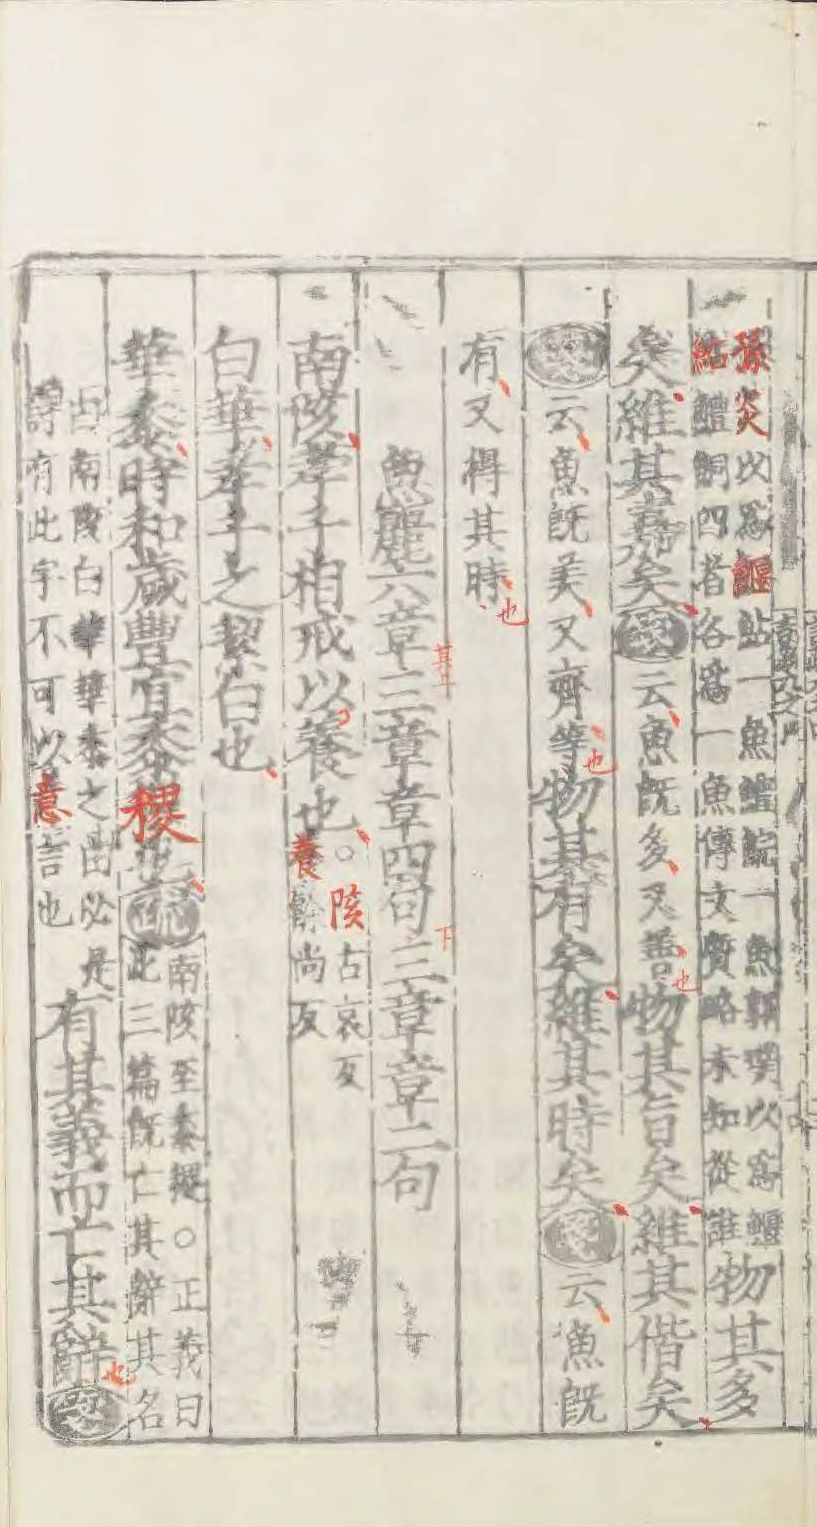 孫炎以爲鰋鮎一魚鱧鯇一魚郭璞以爲鰋
鮎鱧鯇四者各爲一魚傳文質略未知從誰
物其多
矣維其嘉矣箋云魚既多又善也物其旨矣維其偕矣
箋云魚既美又齊等也物其有矣維其時矣箋云魚既
有又得其時也
魚麗六章其上三章章四句下三章章二句
南陔孝子相戒以養也○陔古哀反
養餘尚反
白華孝子之絜白也
華黍時和歲豐宜黍稷也疏
南陔至黍稷○正義曰
此三篇既亡其辭其名
曰南陔白華華黍之由必是
詩有此字不可以意言也
有其義而亡其辭也箋